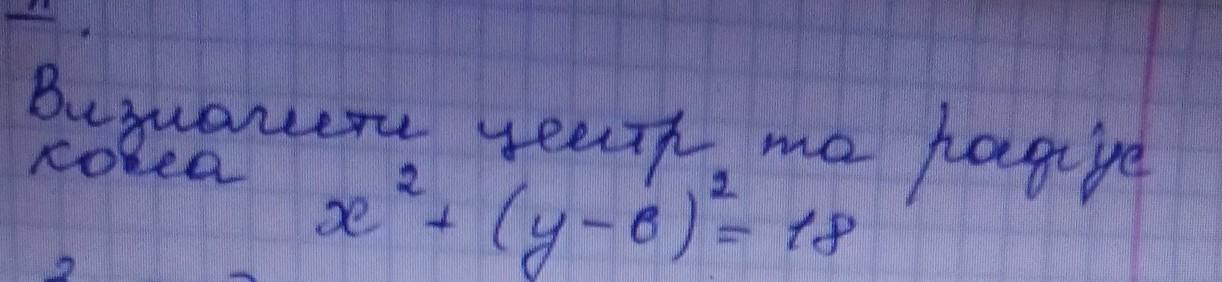 Визначити центр та радіус
кола
x² + (y - 6)² = 18